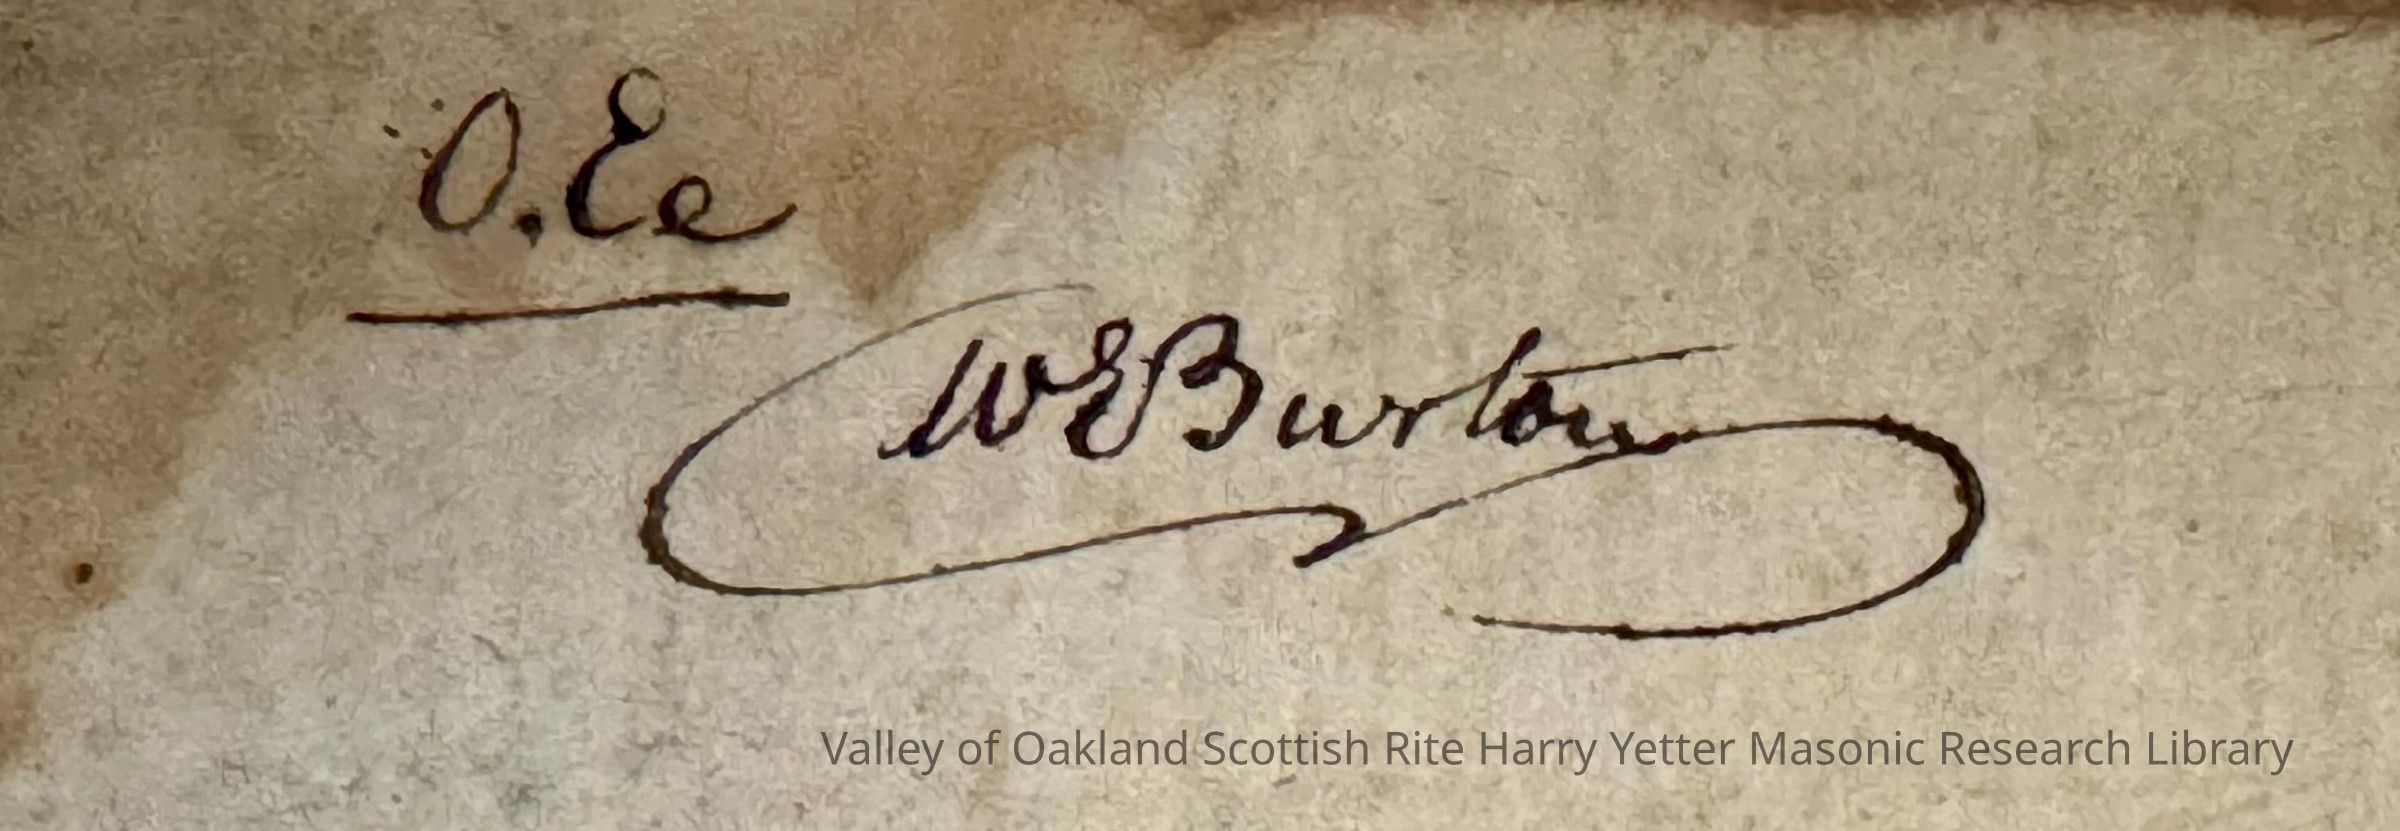 O. Ee
WEBurton
Valley of Oakland Scottish Rite Harry Yetter Masonic Research Library